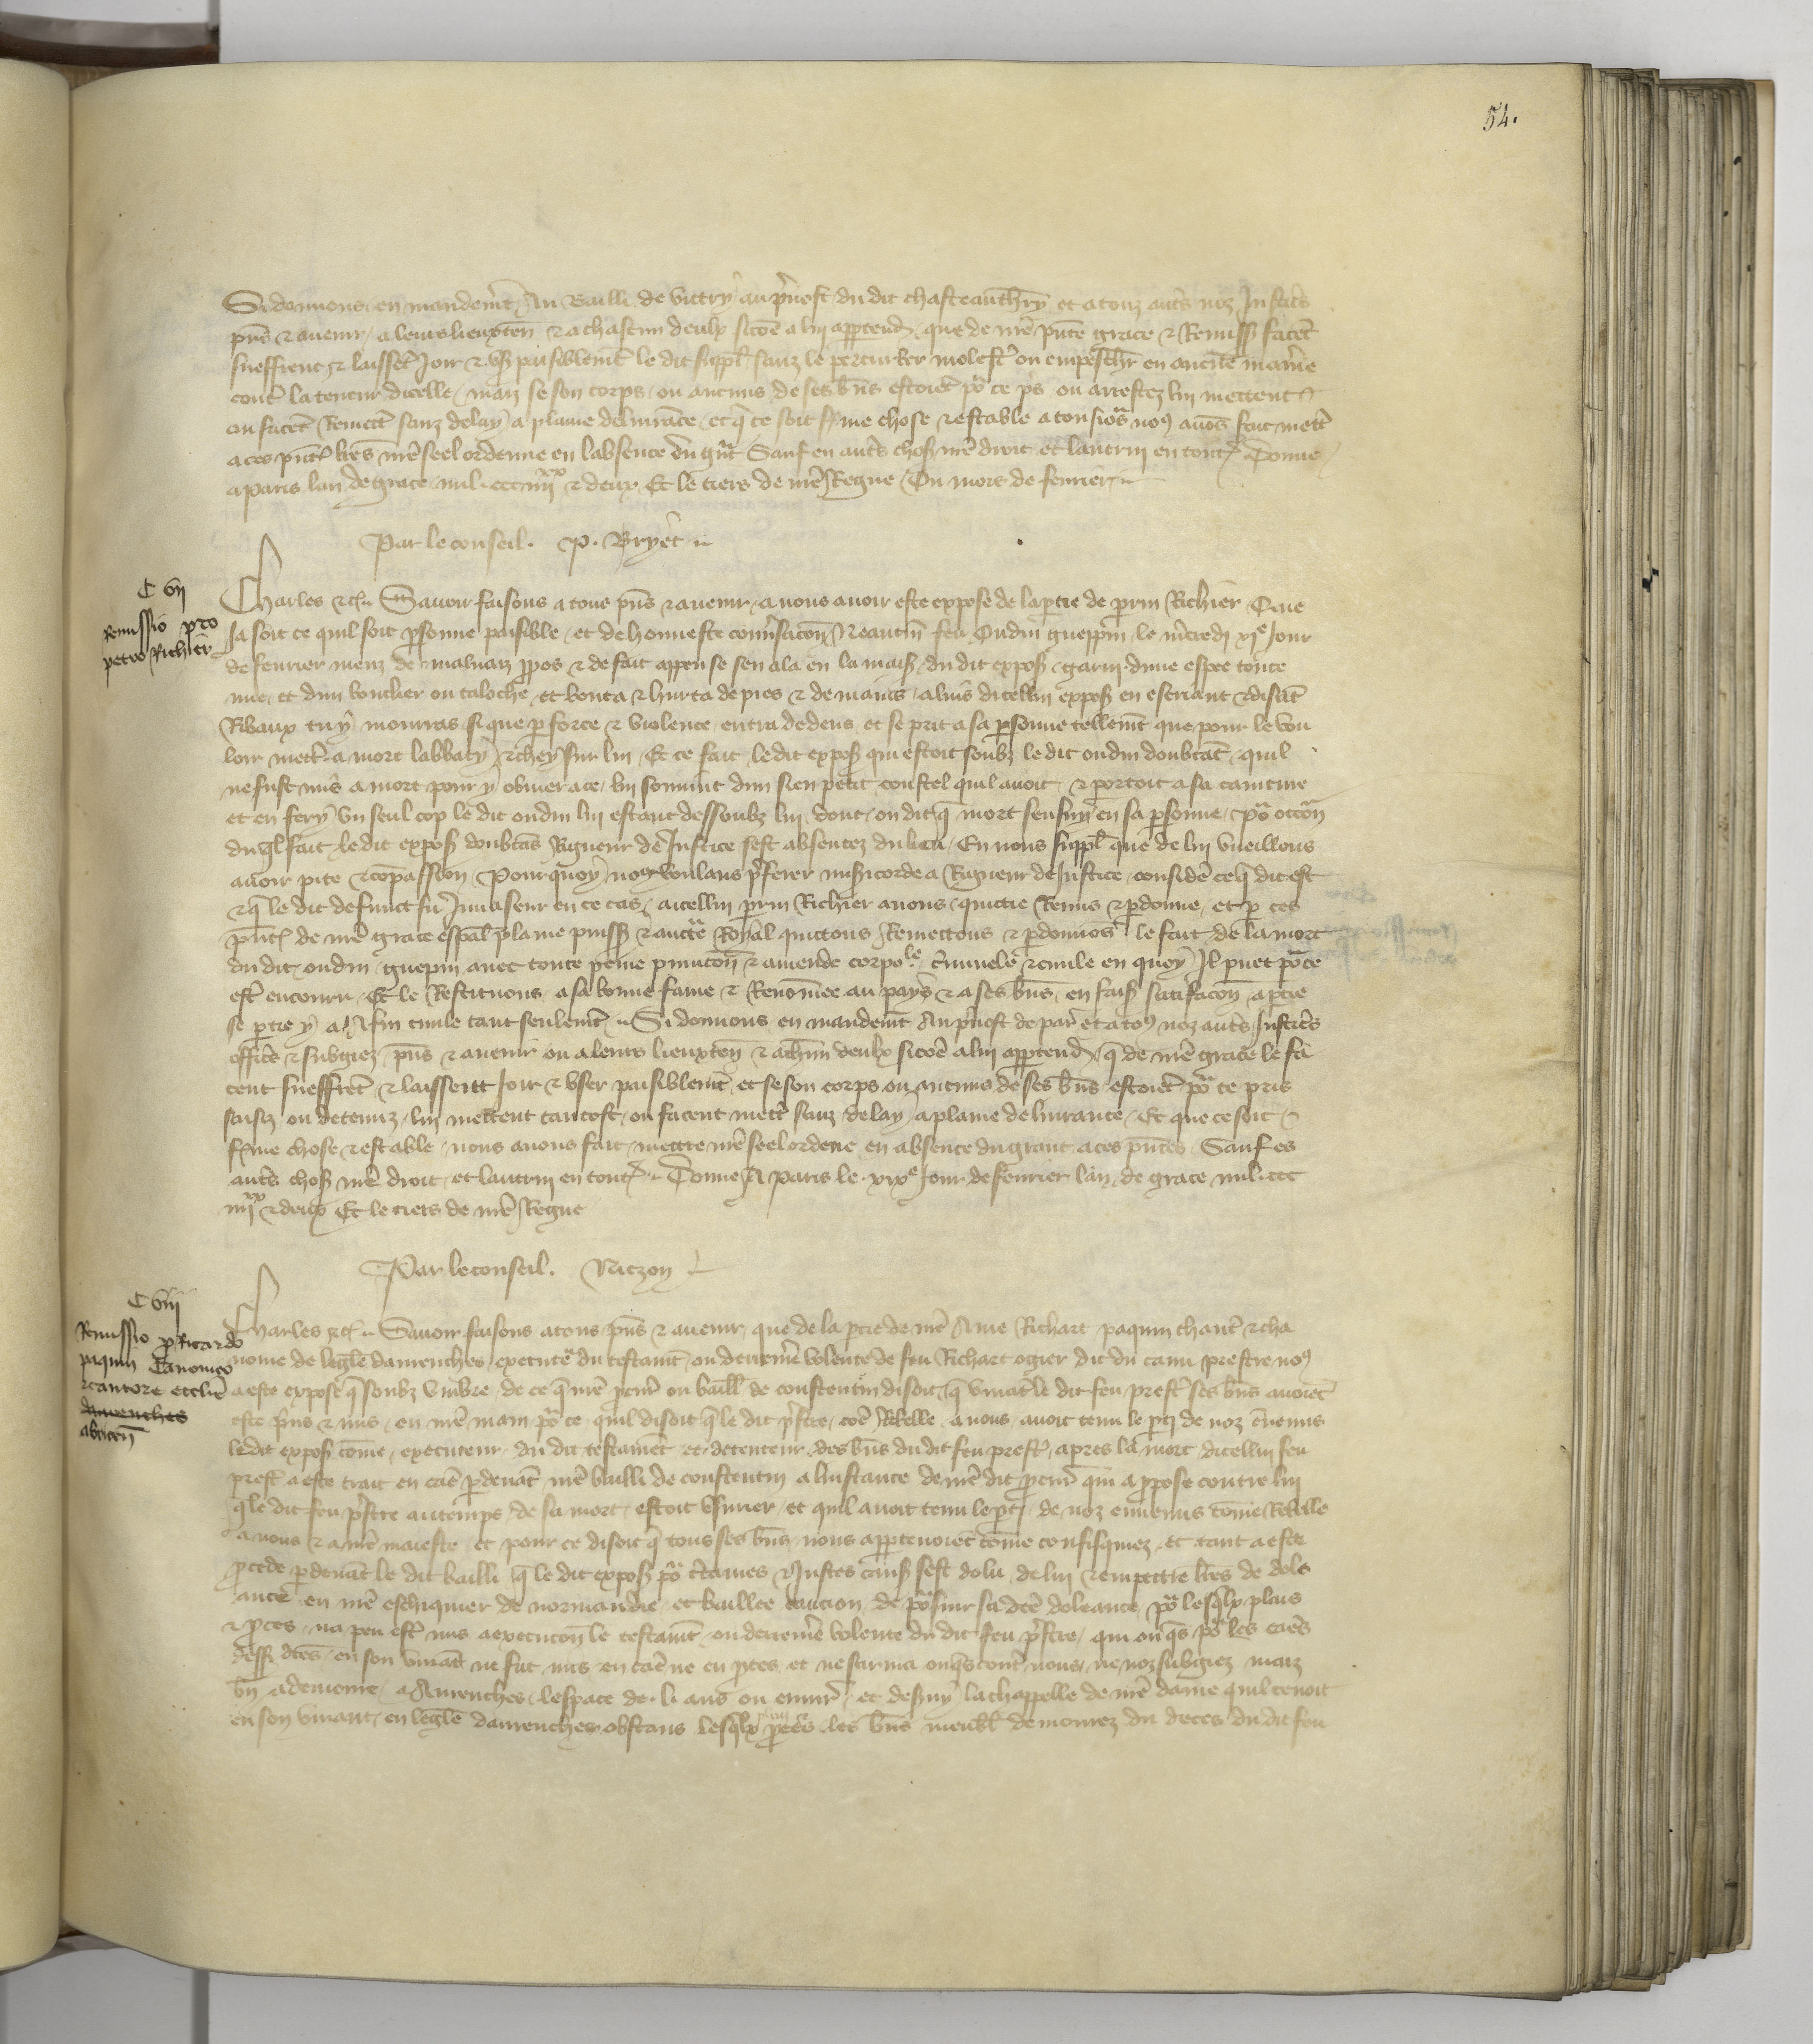 54.
Si donnons en mandemt Au Bailli de vitry au pvost du dit chasteauthrry et a touz auts noz Justics
pns & avenir a leurs lieuxten & a chascun deulx sicoe a lui apptend que de nre pnte grace & Remiss facet
sueffrent & laisset Joir & us paisiblemt le dit suppl sanz le perturber molest ou empeschr en aucune maniere
cont la teneur dicelle mais se son corps ou aucuns de ses bns estoiet po ce ps ou arrestez lui mettent
ou facet Remett sanz delay a plaine delivrace et q ce soit ferme chose & estable a tousiors no9 avos fait mett
a ces pnt lres nre seel ordenne en labsence du gnt Sauf en auts chos nre droit et lautruy en tout Donne
a paris lan de grace mil ccc iiiixx & deux Et le tiers de nre Regne Ou mois de fevrier
Par le conseil. P. Bryet
C vii
Remissio pro
petro Richier
Charles &c Savoir faisons a tous pns & avenir a nous avoir este expose de la ptie de prin Richier Que
Ja soit ce quil soit psonne paisible et de honneste convsacon Neantm feu Oudin gueppin le mcredi xie Jour
de fevrier meuz de malvaiz ppos & de fait appense sen ala en la mais du dit expos garni dune espee toute
nue et dun bouclier ou taloche et bouta & hurta de pies & de mains a luis dicellui expos en escriant & disat
Ribaux tu y mourras si que p force & violence entra dedens et se prit a sa psonne tellemt que pour le vou
loir mett a mort labbaty & chey sur lui Et ce fait ledit expos qui estoit soubz le dit oudin doubtat quil
ne fust mis a mort pour y obvier a ce lui souvint dun sien petit coustel quil avoit & portoit a sa cainture
et en fery un seul cop le dit oudin lui estant dessoubz lui dont on dit q mort sensuy en sa psonne po occon
du ql fait le dit expos doubtas Rigueur de Justice sest absentez du lieu En nous suppl que de lui vueillons
avoir pite & copassion Pourquoy no9 voulans pferer misicorde a Rigueur de Justice conside ce q dit est
& q le dit defunct fu Invaseur en ce cas a icellui prin Richier avons quictie Remis & pdonne et p ces
pnt de nre grace espal plaine puiss & auctte Royal quictons Remettons & pdonnos le fait de la mort
du dit oudin guepin avec toute peine pmucon & amende corpole cmnele & civile en quoy Il puet po ce
est encouru Et le Restituons a sa bonne fame & Renomee au pays & a ses bns en fais satifacon a ptie
se ptie y a A fin civile tant seulemt Si donnons en mandemt Au pvost de par et a to9 noz auts Justics
offics & subgiez pns & avenir ou a leurs lieuxten & a chun deulx sicoe a lui apptend q de nre grace le fa
cent sueffret & laissent Joir & user paisiblemt et se son corps ou aucuns de ses bns estoiet po ce pris
saisiz ou detenuz lui mettent tantost ou facent mett sanz delay a plaine delivrance Et que ce soit
ferme chose & estable nous avons fait mettre nre seel ordene en absence du grant a ces pntes Sauf es
auts chos nre droit et lautruy en tout Donne A Paris le xixe Jour de fevrier lan de grace mil ccc
iiiixx & deux Et le tiers de nre Regne
Par le conseil. Niczon
C viii
Remissio p Ricardo
paquin Canonico
& cantore ecclie
davrenches
abricen
Charles &c Savoir faisons a tous pns & avenir que de la ptie de nre Ame Richart paquin chant & cha
nome de legle davrenches execute du testamt ou derreme volente de feu Richart ogier dit du camp prestre no9
a este expose q soubz umbre de ce q nre pcur ou baill de constentin disoit q vivat le dit feu prest ses bns avoiet
este pns & mis en nre main po ce quil disoit q le dit pstre coe Rebelle a nous avoit tenu le pti de noz enemis
le dit expos come executeur du dit testamet et detenteur des bns du dit feu prest apres la mort dicellui feu
prest a este trait en cae pdevat nre bailli de constentin a linstance de nre dit pcur qui a ppose contre lui
q le dit feu pstre au temps de sa mort estoit usurier et quil avoit tenu le pti de noz ennemis come Rebelle
a nous & a nre maieste et pour ce disoit q tous ses bns nous apptenoiet come confisquiez et tant a este
pcede pdevat le dit bailli q le dit expos po ctaines & Justes caus sest dolu de lui & empetrie lres de dole
ance en nre eschiquier de normandie et baillee caucion de posuir sa dte doleance po lesqlx plais
& pces na peu est mis a execucon le testamt ou derreme volente du dit feu pstre qui onqs po les caes
dess dtes en son vivat ne fut mis en cae ne en pces et ne sarma onqs cont nous ne noz subgiez maiz
bn a demoure a Avrenches lespace de li ans ou envir et desvy la chappelle de nre dame quil tenoit
en son vivant en legle davrenches obstans lesqlx pces les bns meubl demourez du deces du dit feu